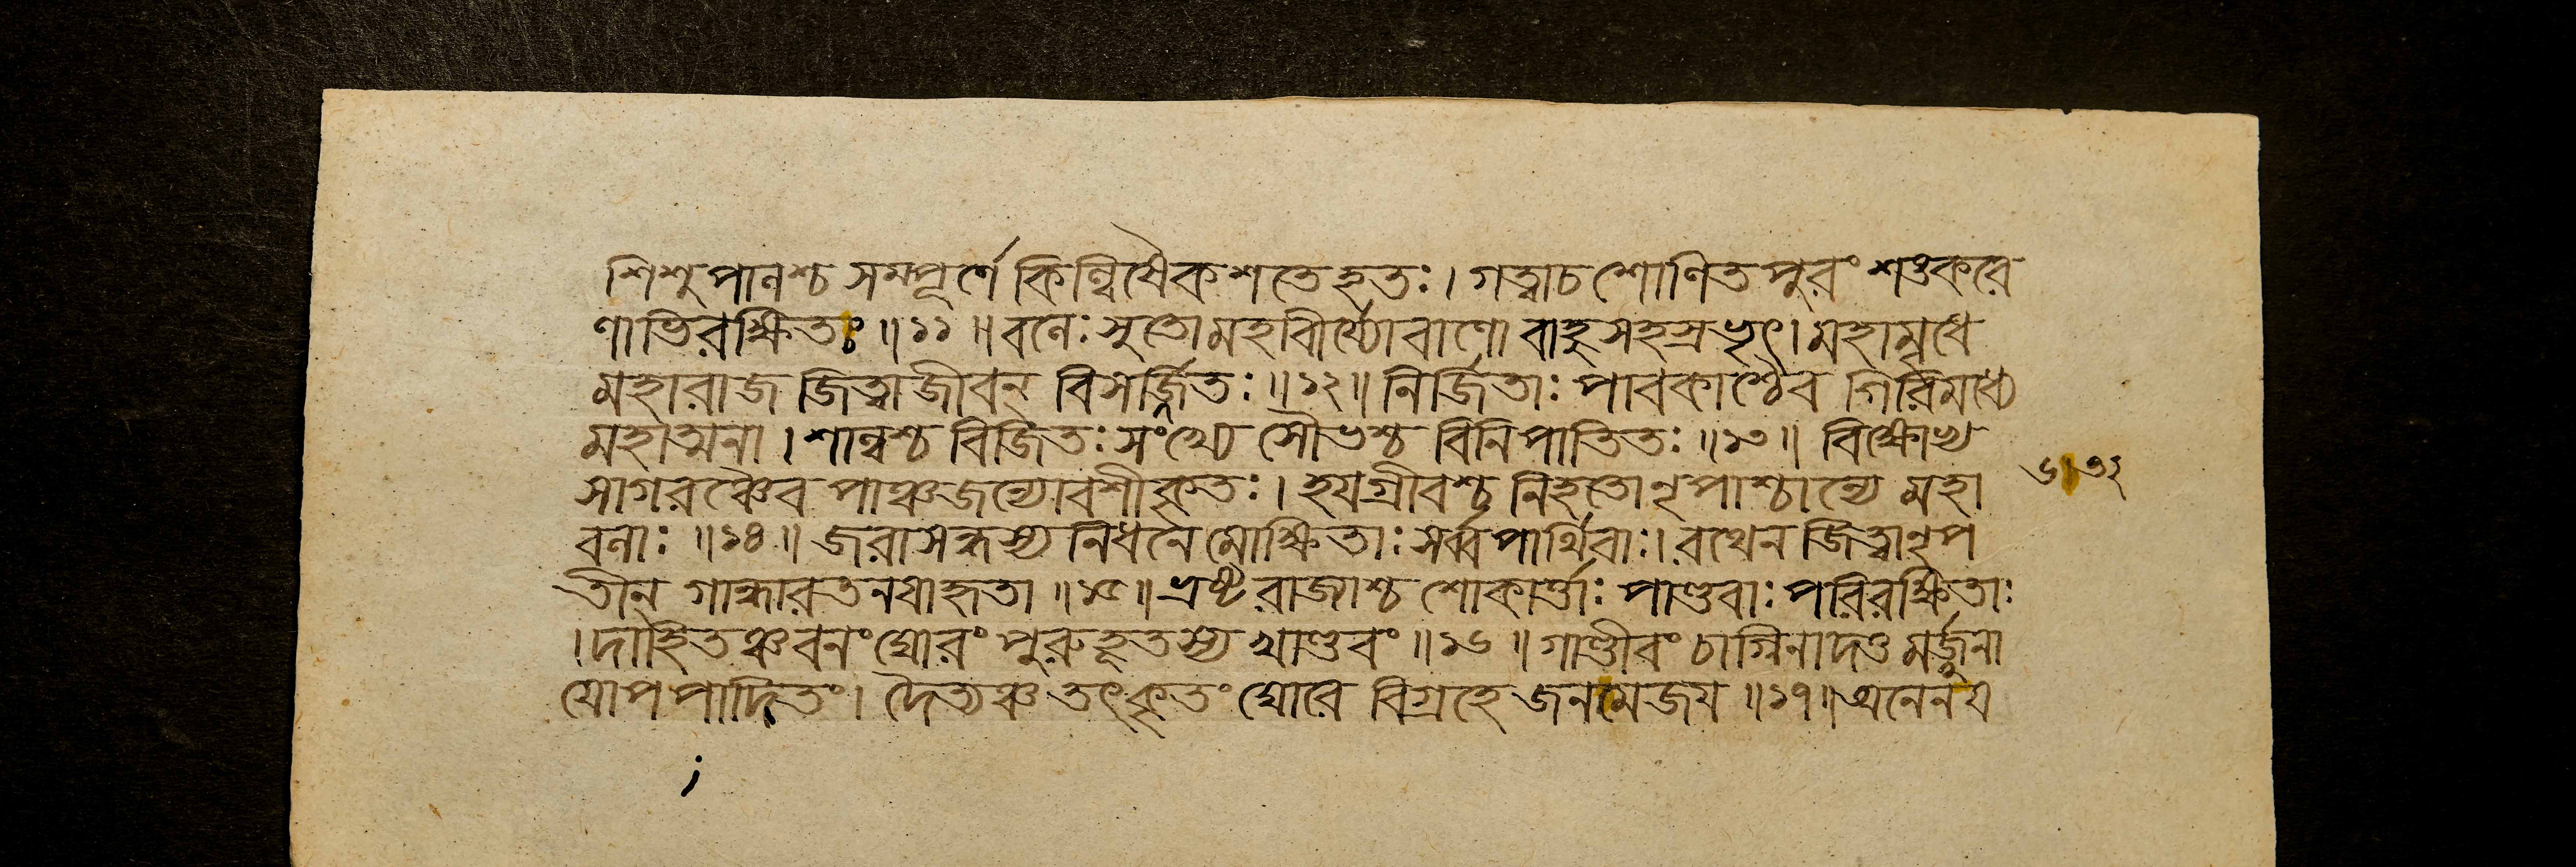 শিশুপালশ্চ সম্পূর্ণে কিল্বিষৈকশতে হতঃ। গত্বাচ শোণিতপুরং শঙ্করে
ণাভিরক্ষিতং ॥১১॥ বলেঃ সুতোমহাবীর্য্যোবাণো বাহুসহস্রভৃৎ। মহামৃধে
মহারাজ জিত্বাজীবন্ বিসর্জ্জিতঃ ॥১২॥ নির্জিতাঃ পাবকাশ্চৈব গিরিমধ্যে
মহাত্মনা। শাল্বশ্চ বিজিতঃ সংখ্যে সৌভশ্চ বিনিপাতিতঃ ॥১৩॥ বিক্ষোভ্য
সাগরঞ্চৈব পাঞ্চজন্যোবশীকৃতঃ। হয়গ্রীবশ্চ নিহতোনৃপাশ্চান্যে মহা
বলাঃ ॥১৪॥ জরাসন্ধস্য নিধনে মোক্ষিতাঃ সর্ব্বপার্থিবাঃ। রথেন জিত্বানৃপ
তীন্ গান্ধারতনয়াহৃতা ॥১৫॥ ভ্রষ্টরাজ্যাশ্চ শোকার্ত্তাঃ পাণ্ডবাঃ পরিরক্ষিতাঃ
। দাহিতঞ্চবনং ঘোরং পুরুহূতস্য খাণ্ডবং ॥১৬॥ গাণ্ডীবং চাগ্নিনাদত্ত মর্জ্জুনা
যোপপাদিতং। দৈত্যঞ্চ তৎকৃতং ঘোরে বিগ্রহে জনমেজয় ॥১৭॥ অনেনয